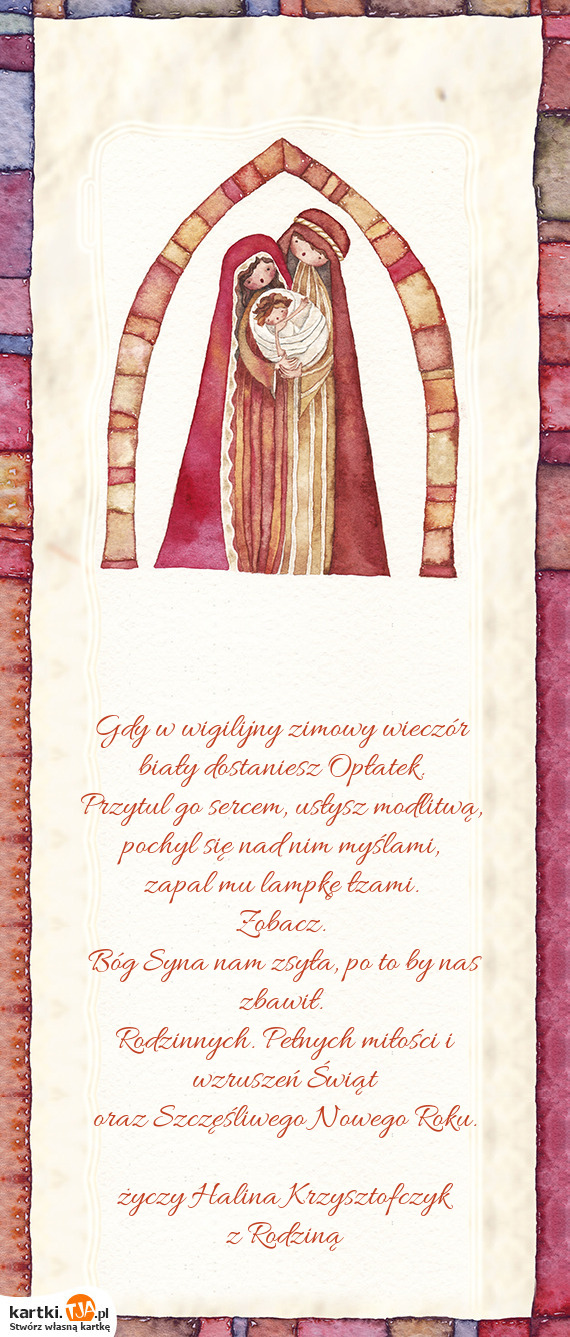 Gdy w wigilijny zimowy wieczór
biały dostaniesz Opłatek.
Przytul go sercem, usłysz modlitwą,
pochyl się nad nim myślami,
zapal mu lampkę łzami.
Zobacz.
Bóg Syna nam zsyła, po to by nas
zbawił.
Rodzinnych. Pełnych miłości i
wzruszeń Świąt
oraz Szczęśliwego Nowego Roku.
życzy Halina Krzysztofczyk
z Rodziną
kartki.TJA.pl
Stwórz własną kartkę